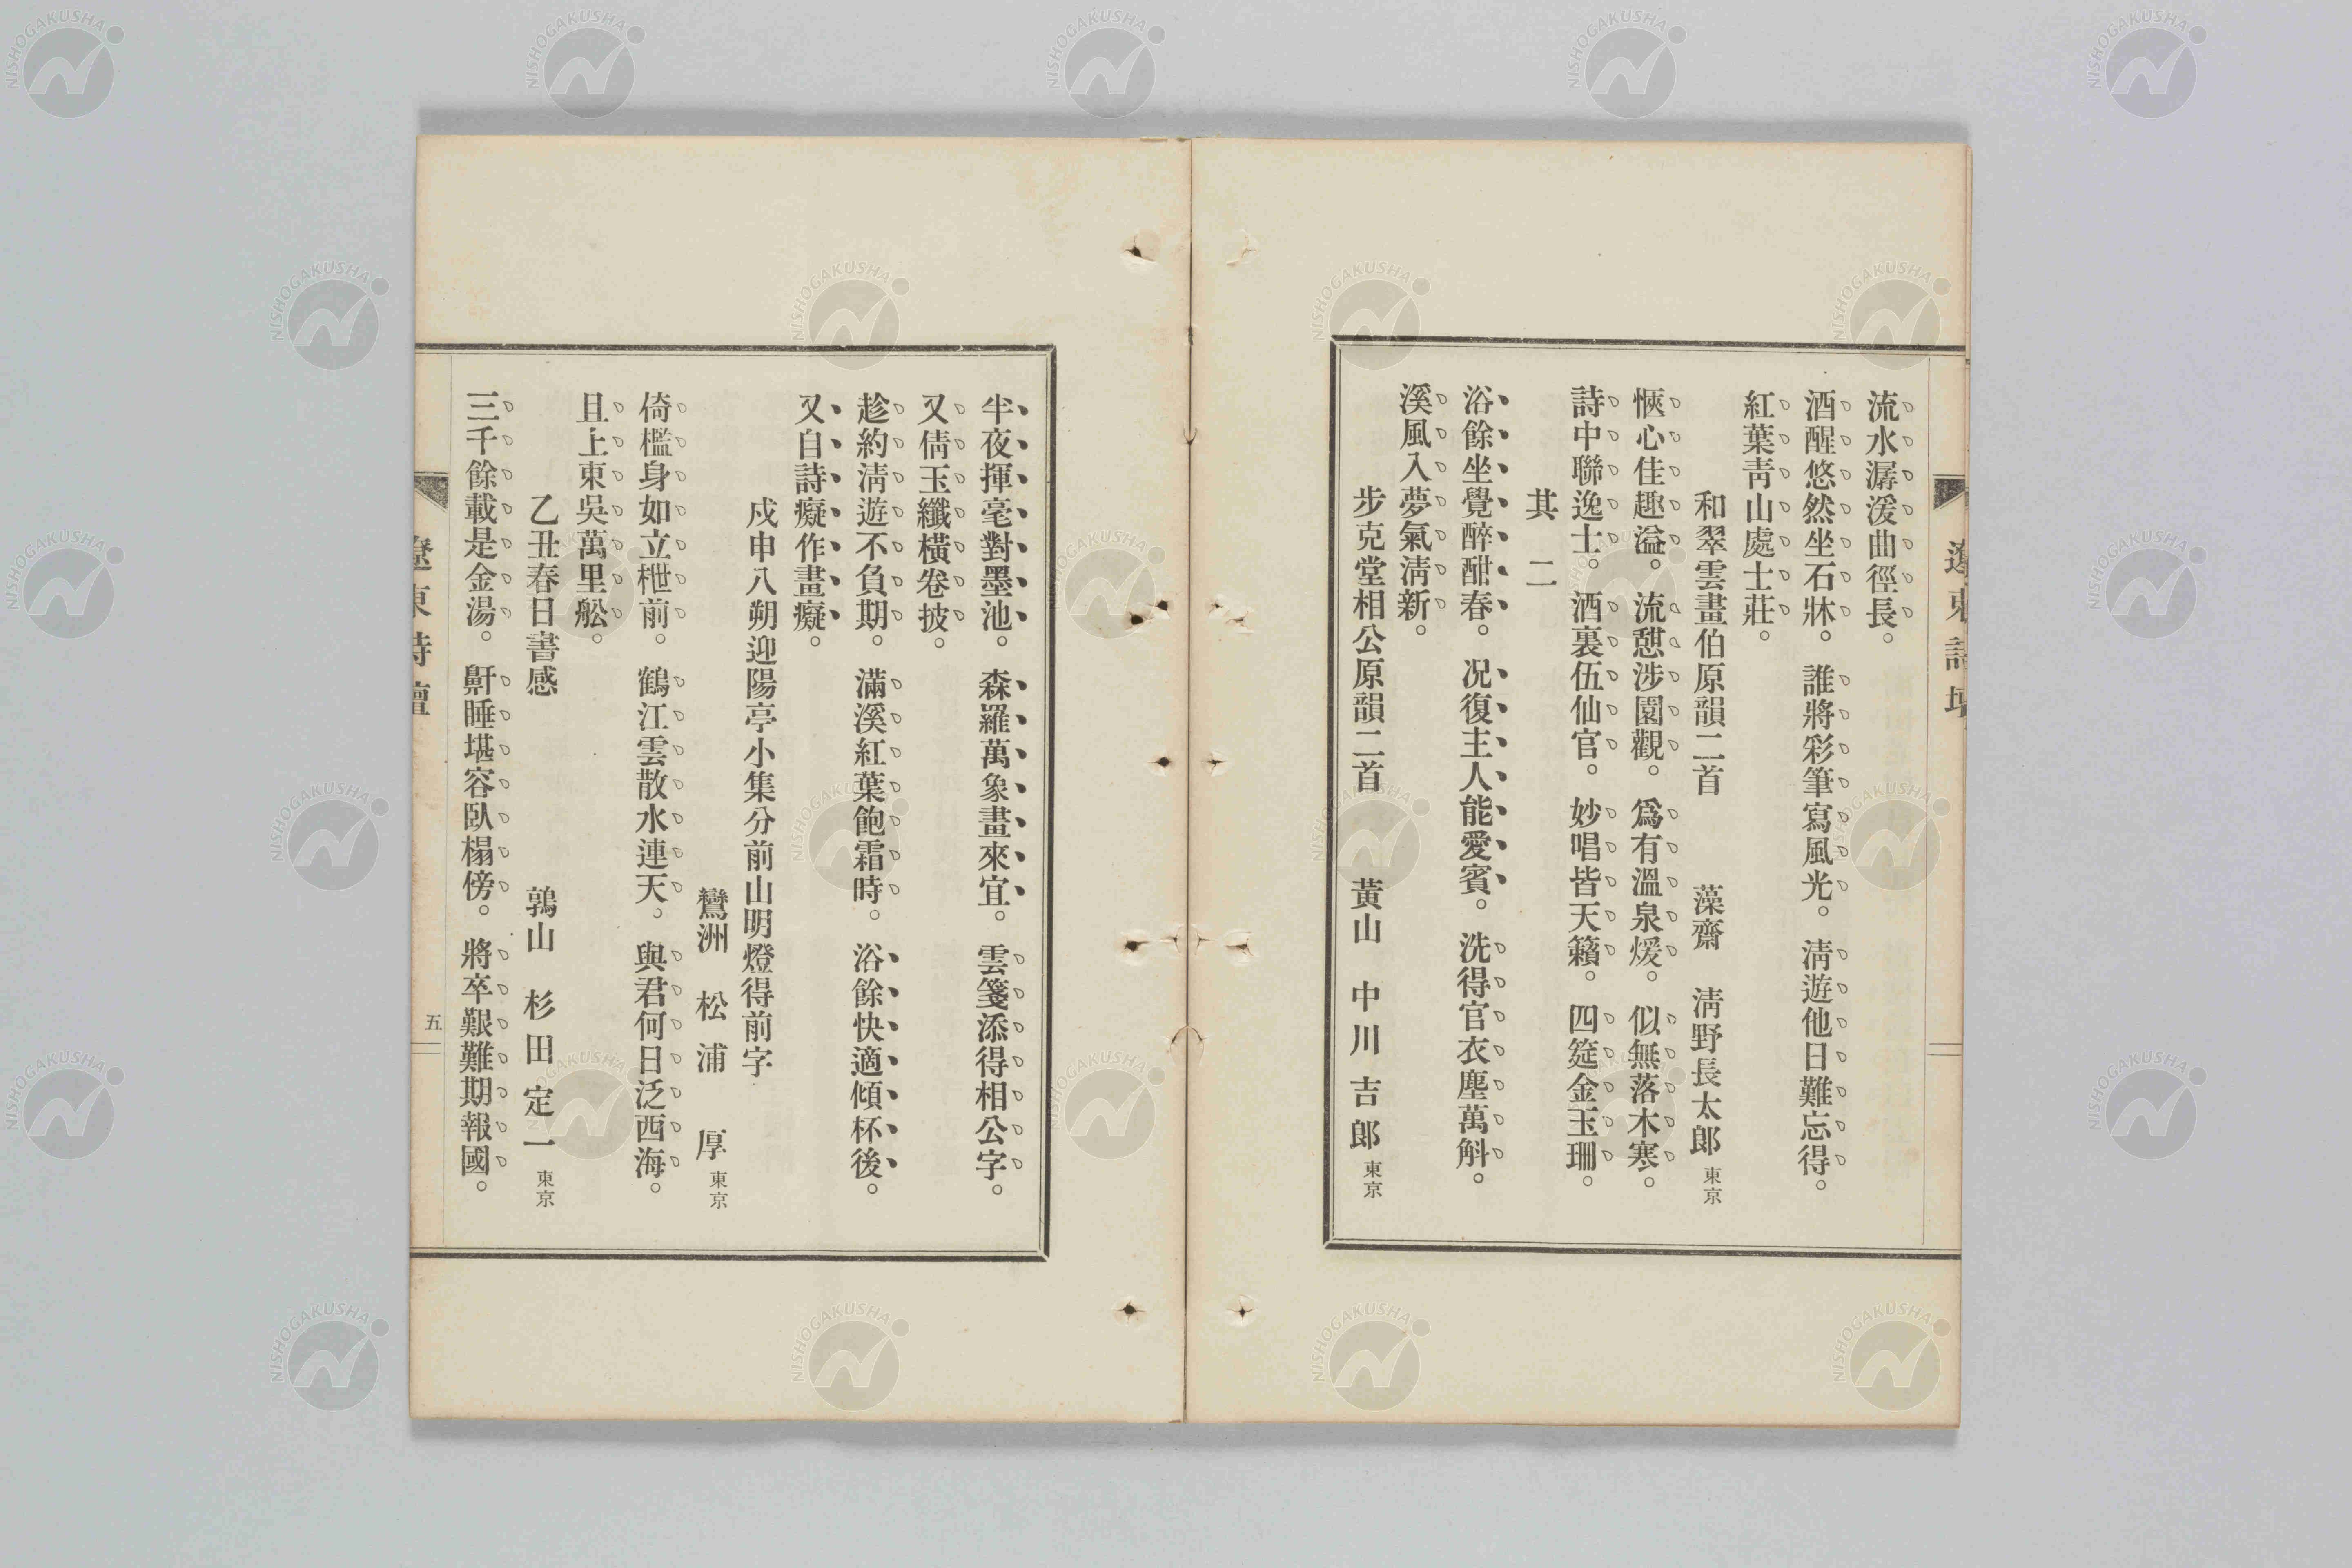 遼東詩壇
流水潺湲曲徑長。
酒醒悠然坐石牀。誰將彩筆寫風光。淸遊他日難忘得。
紅葉靑山處士莊。
和翠雲畫伯原韻二首 藻齋 淸野長太郞 東京
愜心佳趣溢。流憩涉園觀。爲有溫泉煖。似無落木寒。
詩中聯逸士。酒裏伍仙官。妙唱皆天籟。四筵金玉珊。
其二
浴餘坐覺醉酣春。况復主人能愛賓。洗得官衣塵萬斛。
溪風入夢氣淸新。
步克堂相公原韻二首 黃山 中川吉郞 東京
半夜揮毫對墨池。森羅萬象畫來宜。雲箋添得相公字。
又倩玉纖橫卷披。
趁約淸遊不負期。滿溪紅葉飽霜時。浴餘快適傾杯後。
又自詩癡作畫癡。
戊申八朔迎陽亭小集分前山明燈得前字
鸞洲 松浦厚 東京
倚檻身如立枻前。鶴江雲散水連天。與君何日泛西海。
且上東吳萬里舩。
乙丑春日書感 鶉山 杉田定一 東京
三千餘載是金湯。鼾睡堪容臥榻傍。將卒艱難期報國。
遼東詩壇
五
NISHOGAKUSHA